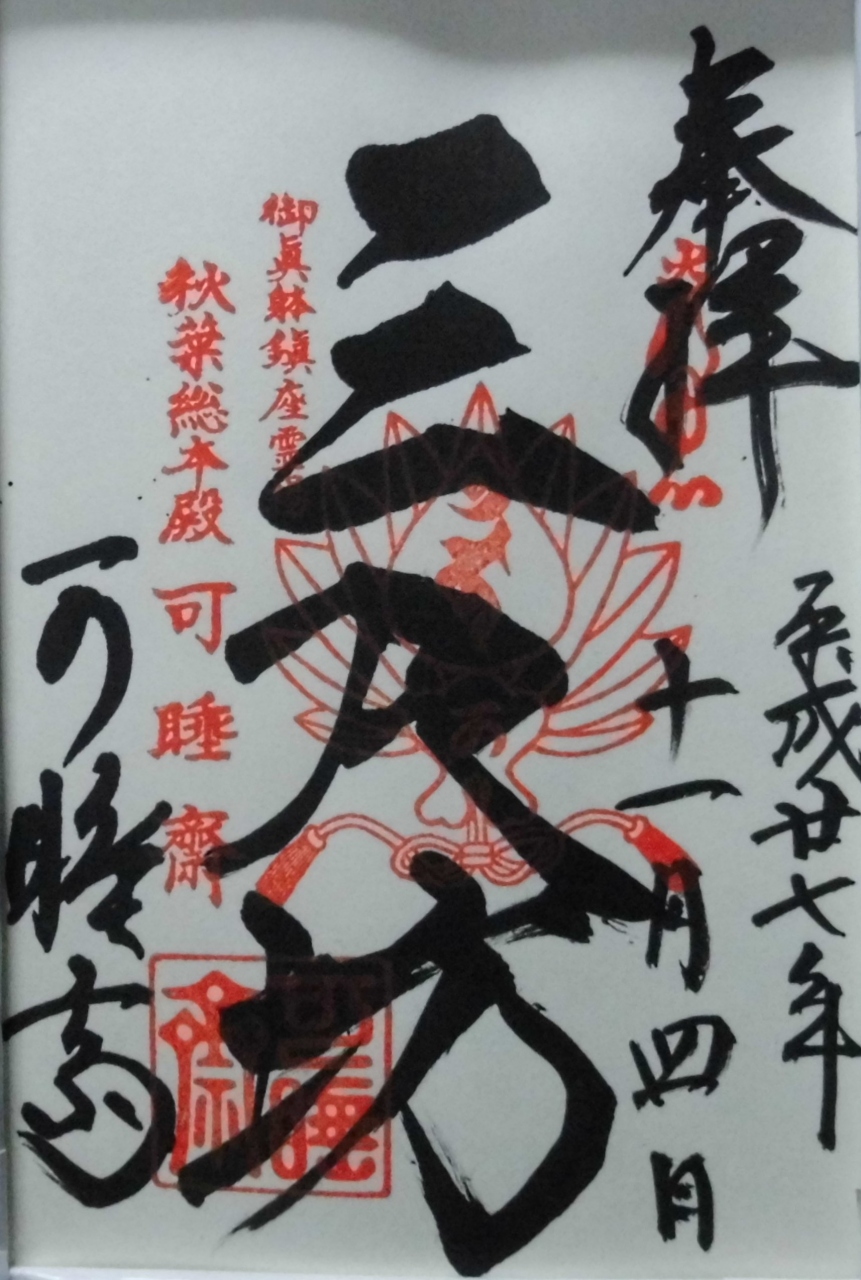 奉拝
平成廿七年
十一月四日
三尺坊
御眞躰鎮座霊
秋葉総本殿
可睡齋
可睡斎